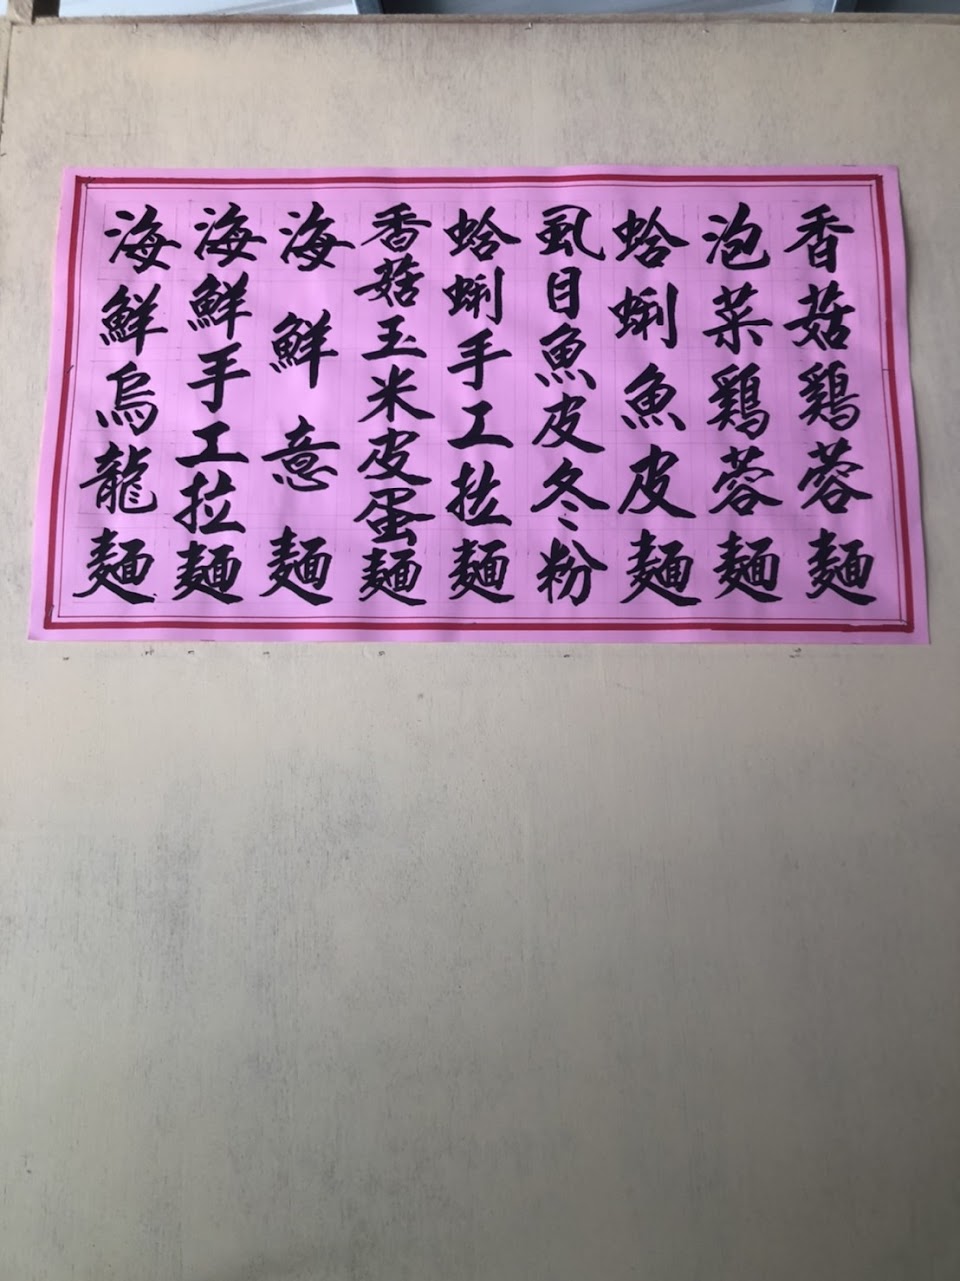 香菇鷄蓉麵
泡菜鷄蓉麵
蛤蜊魚皮麵
虱目魚皮冬粉
蛤蜊手工拉麵
香菇玉米皮蛋麵
海鮮意麵
海鮮手工拉麵
海鮮烏龍麵